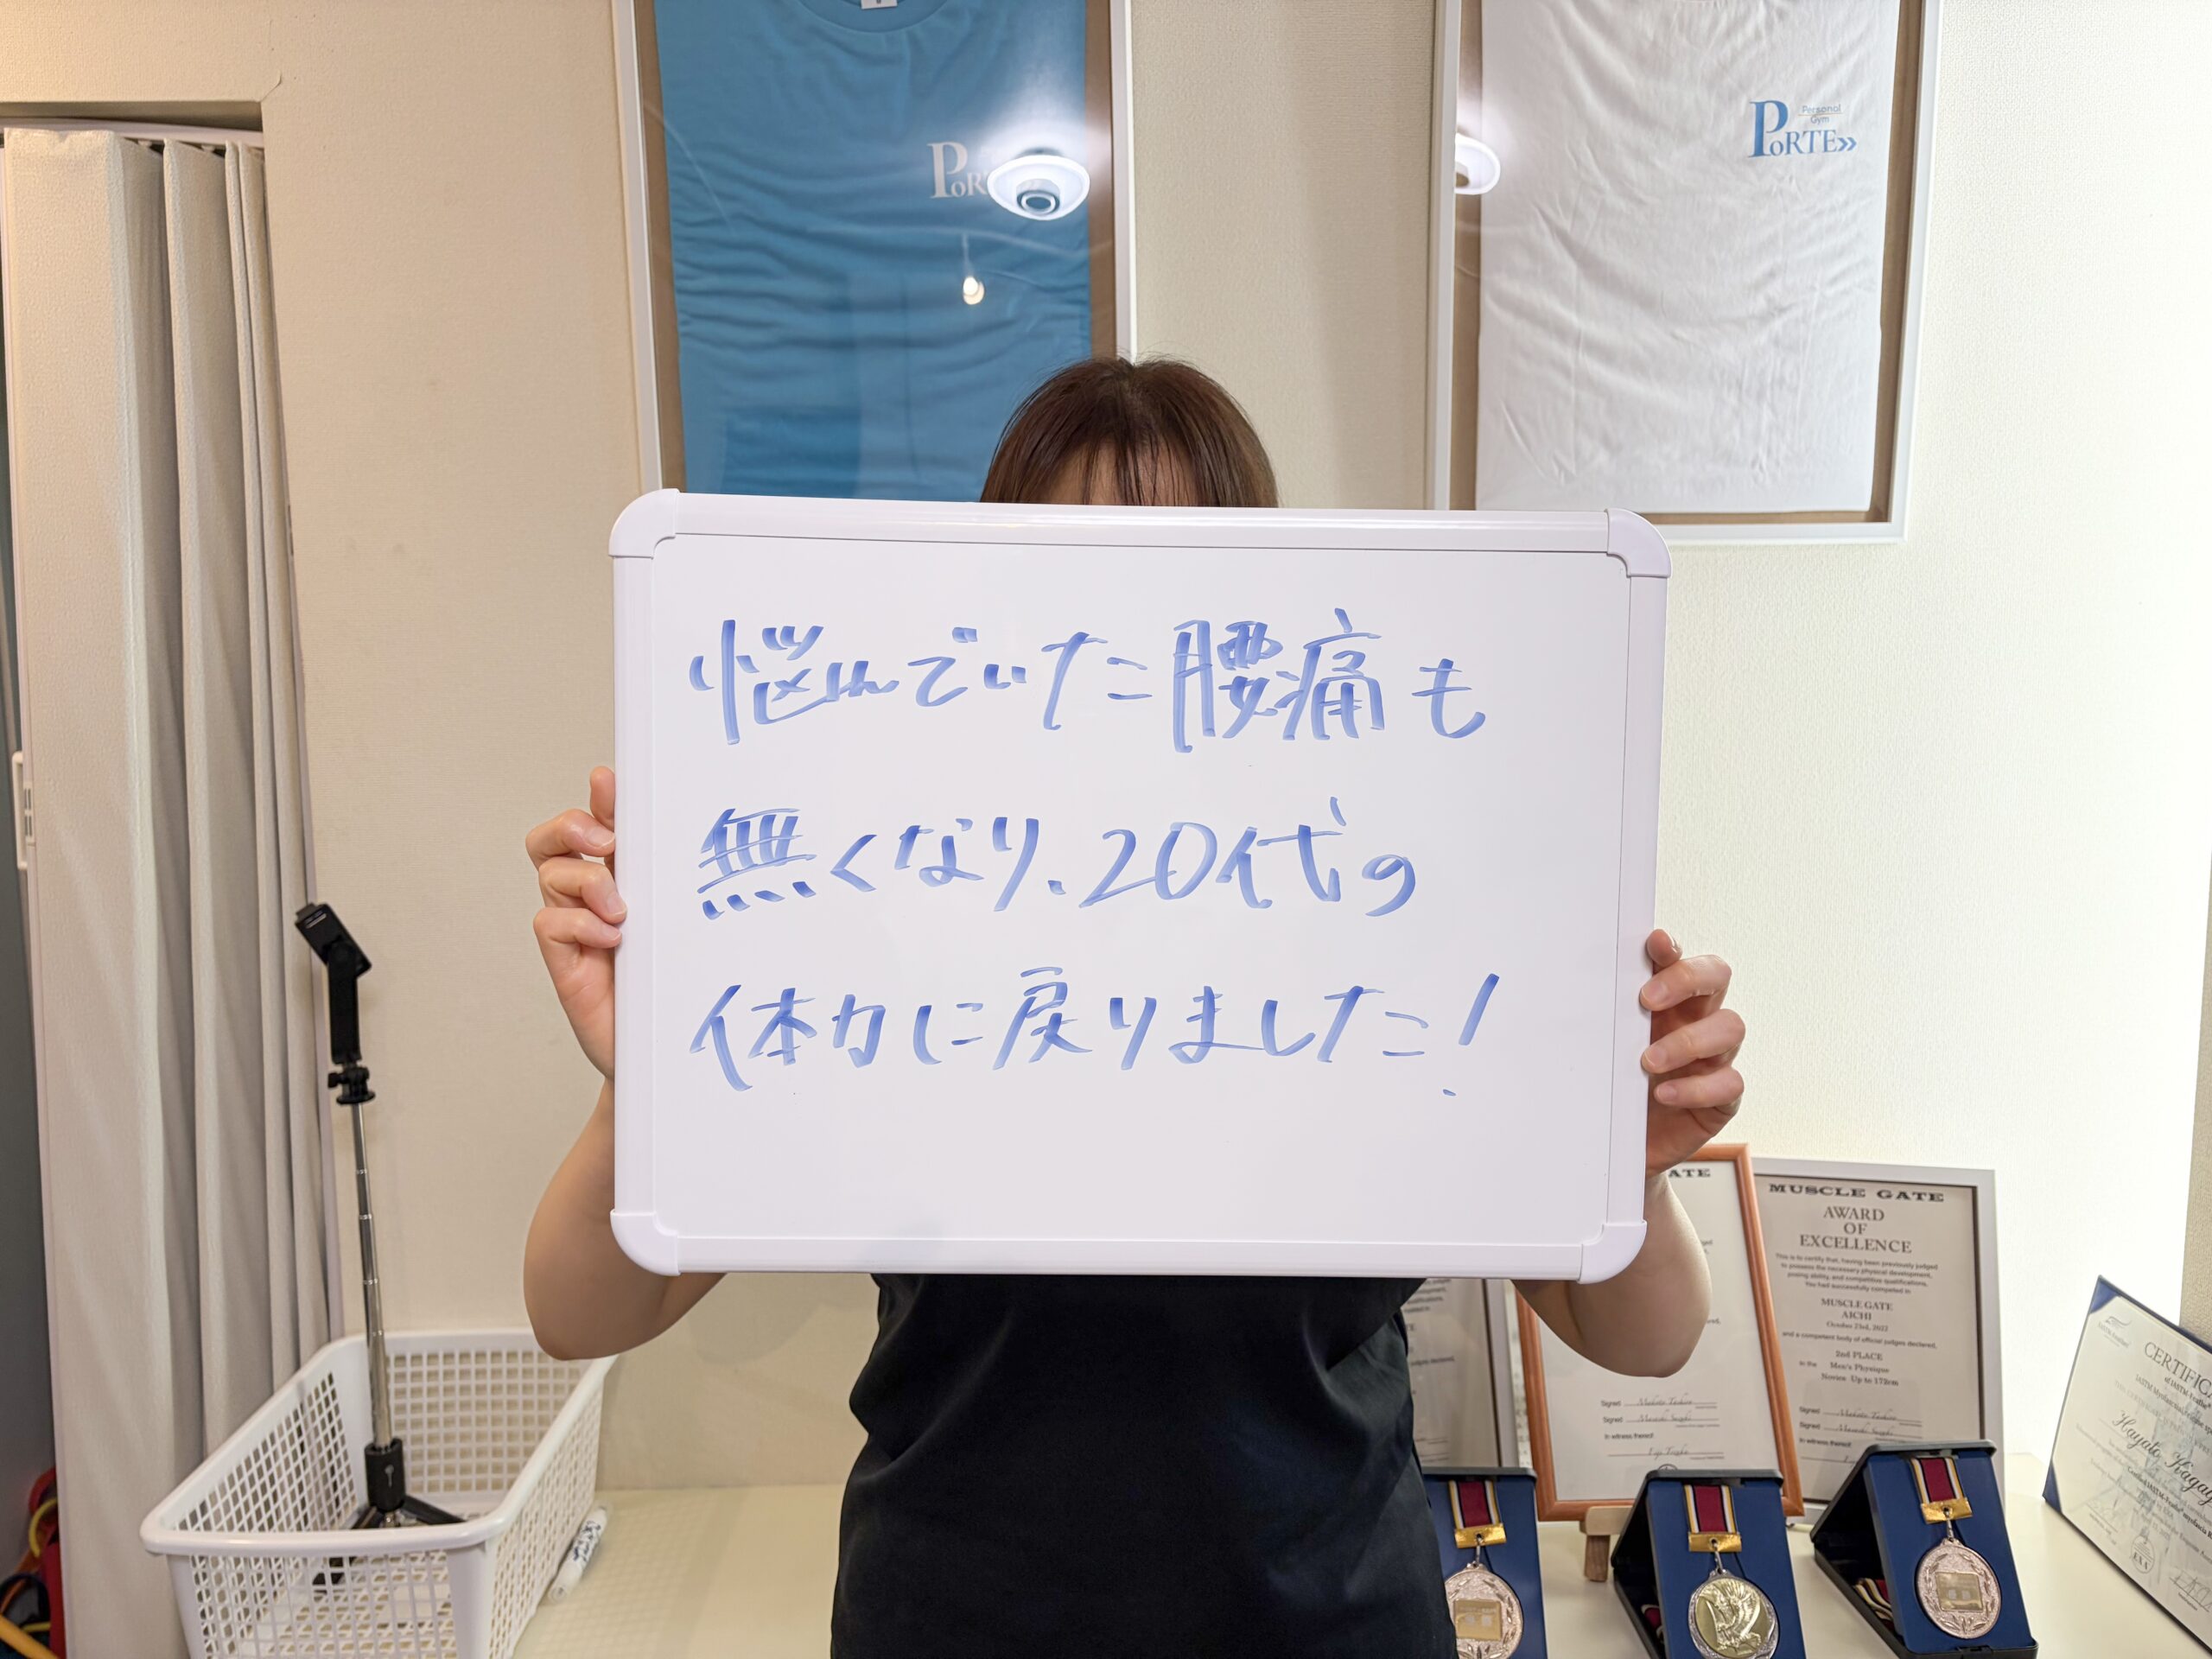 PoR
Personal
Gym
PoRTE»
悩んでいた腰痛も
無くなり、20代の
体力に戻りました!
ATE
MUSCLE GATE
AWARD
OF
EXCELLENCE
This is to certify that, having been previously judged
to possess the necessary physical development,
posing ability, and competitive qualifications,
You had successfully competed in
MUSCLE GATE
AICHI
October 23rd, 2022
and a competent body of official judges declared,
2nd PLACE
in the Men's Physique
Novice Up to 172cm
Signed
Signed
In witness thereof
Signed
Signed
In witness thereof
CERTIFIC
Hayato Kaga